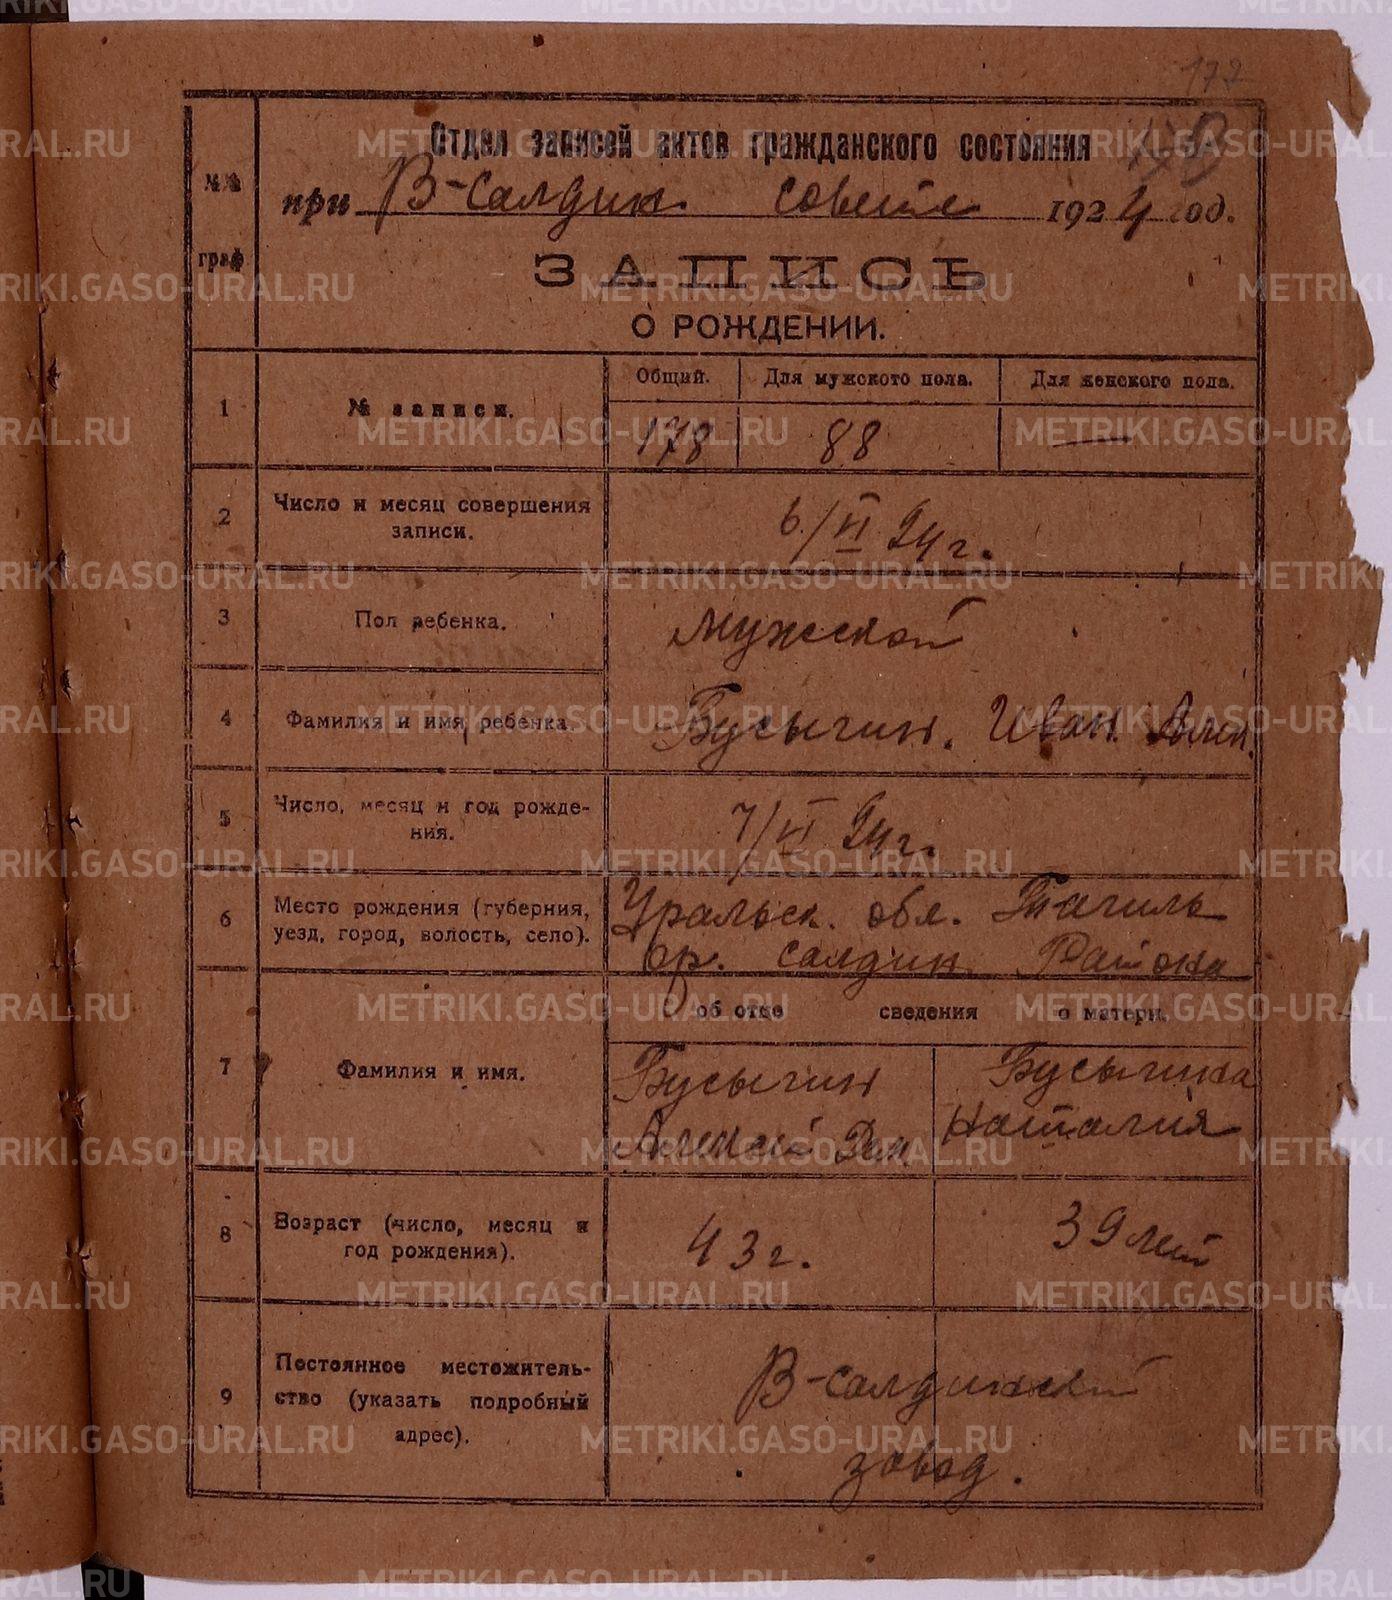 172
Отдел записей актов гражданского состояния
при В-Салдин. совете 1924 год.
№№ граф
ЗАПИСЬ
О РОЖДЕНИИ.
Общий. Для мужского пола. Для женского пола.
1 № записи. 178 88 —
2 Число и месяц совершения записи. 6/VI 24 г.
3 Пол ребенка. мужской
4 Фамилия и имя ребенка. Бусыгин. Иван. Алек.
5 Число, месяц и год рождения. 7/VI 24 г.
6 Место рождения (губерния, уезд, город, волость, село). Уральск. обл. Тагильс
ор. Салдин Района
об отце сведения о матери.
7 Фамилия и имя. Бусыгин Бусыгина
Алексей Наталия
8 Возраст (число, месяц и год рождения). 43 г. 39 лет
9 Постоянное местожительство (указать подробный адрес). В-Салдинский
завод.
METRIKI.GASO-URAL.RU